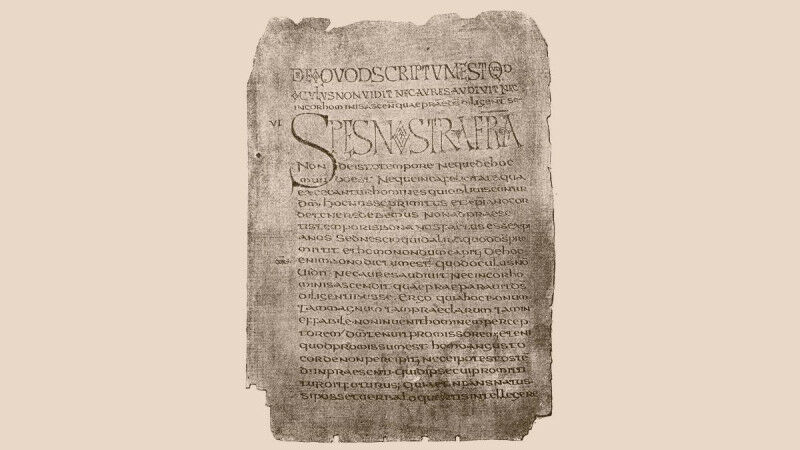 QVODSCRIPTVMESTQD
OCVLVSNONVIDITNECAVRESAVDIVITNEC
INCORHOMINISASCEN QUAEPRAEP DS DILIGENT SE
VI SPESNOSTRAFRA
NON DEISTOTEMPORE NEQUEDEHOC
MUN DOEST NEQUEINEAFELICITATEQUA
EXCECANTURHOMINESQUIOBLIUISCUNTUR
DM HOCNOSSEPRIMITUS ETXPIANOCOR
DETENERE DEBEMUS NONADPRAESE
TISTEMPORISBONA NOSFACTUS ESSEXPI
ANOS SEDNESCIOQUIDALIUDQUODDSPRO
MITTIT ETHOMONONDUMCAPIT DEHOC
ENIMBONODICTUMEST QUODOCULUSNO
UIDIT NECAURESAUDIUIT NECINCORHO
MINISASCENDIT QUAEPRAEPARAUITDS
DILIGENTIBUSSE ERGO QUIAHOCBONUM
TAMMAGNUM TAMPRAECLARUM TAMIN
EFFABILE NONINUENITHOMINEMPERCEP
TOREM DMTENUITPROMISSOREM ETENI
QUODPROMISSUMEST HOMOANGUSTO
CORDENONPERCIPIT NECUIPOTESTOSTE
DIINPRAESENTI QUIDIPSECUIPROMITTI
TURSITFUTURUS; QUIAETINFANSNATUS
SIPOSSETUERBALOQUENTISINTELLEGERE